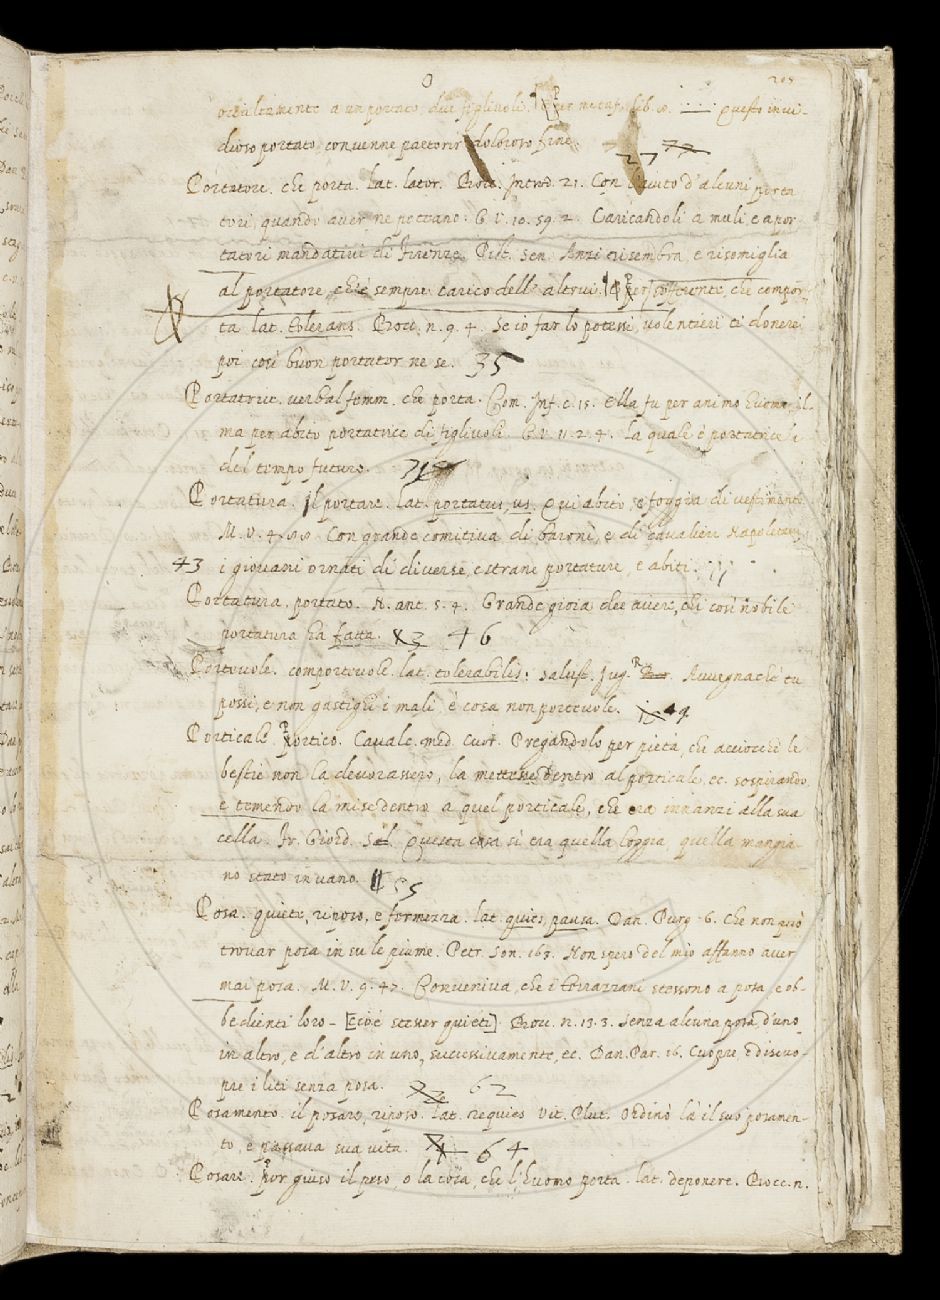 O 205
occultamente a un portato due figliuoli. ¶ Per metaf. lib. Questo invi-
dioso portato convenne partorir doloroso fine. 27
Portatore. che porta. lat. lator. Bocc. Introd. 21. Con l'aiuto d'alcuni porta
tori, quando aver ne potano. G. V. 10. 59. 2. Caricandoli a muli, e a por
tatori mandativi di Firenze. Pist. Sen. Anzi risembra, e risomiglia
al portatore, ch'è sempre carico dell'altrui. ¶ Per sofferente, che compor
ta lat. tolerans. Bocc. n. 9. 4. Se io far lo potessi, volentieri ti donerei
poi così buon portator ne se. 35
Portatrice. verbal femm. che porta. Com. Inf. c. 15. Ella fu per animo huomo, il
ma per abito portatrice di figliuoli. G. V. 11. 2. 4. la quale è portatrice
del tempo futuro.
Portatura. Il portare. lat. portatus, us. Qui abito, e foggia di vestimento
M. V. 4. Con grande comitiva di baroni, e di cavalieri Napoletani,
43 i giovani ornati di diverse, e strane portature, e abiti.
Portatura. portato. N. ant. 5. 4. Grande gioia dee avere, chi così nobile
portatura ha fatta. 46
Portevole. comportevole. lat. tolerabilis. Salust. Jug. R. Avvegnachè tu
possi, e non gastighi i mali è cosa non portevole. 49
Porticale. Portico. Cavalc. med. cuor. Pregandolo per pietà, che acciocchè le
bestie non la devorassero, la mettesse dentro al porticale, ec. sospirando,
e temendo la mise dentro a quel porticale, che era innanzi alla sua
cella. Fr. Giord. Sal. Questa casa si era quella loggia, quella mangia-
no stato in vano. 55
Posa. quiete, riposo, e fermezza. lat. quies, pausa. Dan. Purg. 6. Che non può
trovar posa in su le piume. Petr. Son. 163. Non spero del mio affanno aver
mai posa. M. V. 9. 47. Conveniva, che i terrazzani stessono a posa, e ob-
bedienti loro - [cioè stesser quieti]. Bocc. n. 13. 3. Senza alcuna posa d'uno
in altro, e d'altro in uno, successivamente, ec. Dan. Par. 16. Cuopre, e discuo-
pre i liti senza posa. 62
Posamento. il posare, riposo. lat. requies. Vit. Plut. Ordinò là il suo posamen-
to, e passava sua vita. 64
Posare. Por giuso il peso, o la cosa, che l'huomo porta. lat. deponere. Bocc. n.